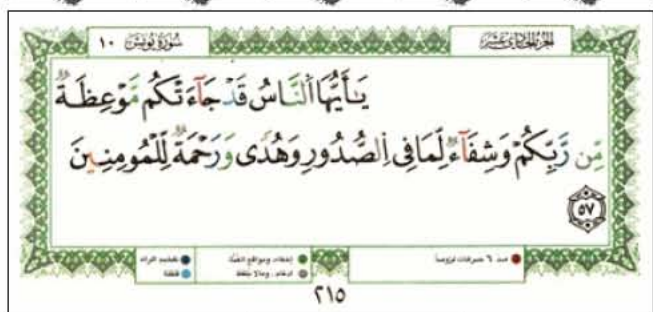 الجزء الحادي عشر سُورَةُ يُونُسَ ١٠
يَٰأَيُّهَا اَ۬لنَّاسُ قَدْ جَآءَتْكُم مَّوْعِظَةٌ
مِّن رَّبِّكُمْ وَشِفَآءٌ لِّمَا فِى اِ۬لصُّدُورِ وَهُدًى وَرَحْمَةٌ لِّلْمُومِنِينَ
٥٧
مد ٦ حركات لزوماً إخفاء، ومواقع الغنة تفخيم الراء
ادغام، ومالا يلفظ قلقلة
٢١٥